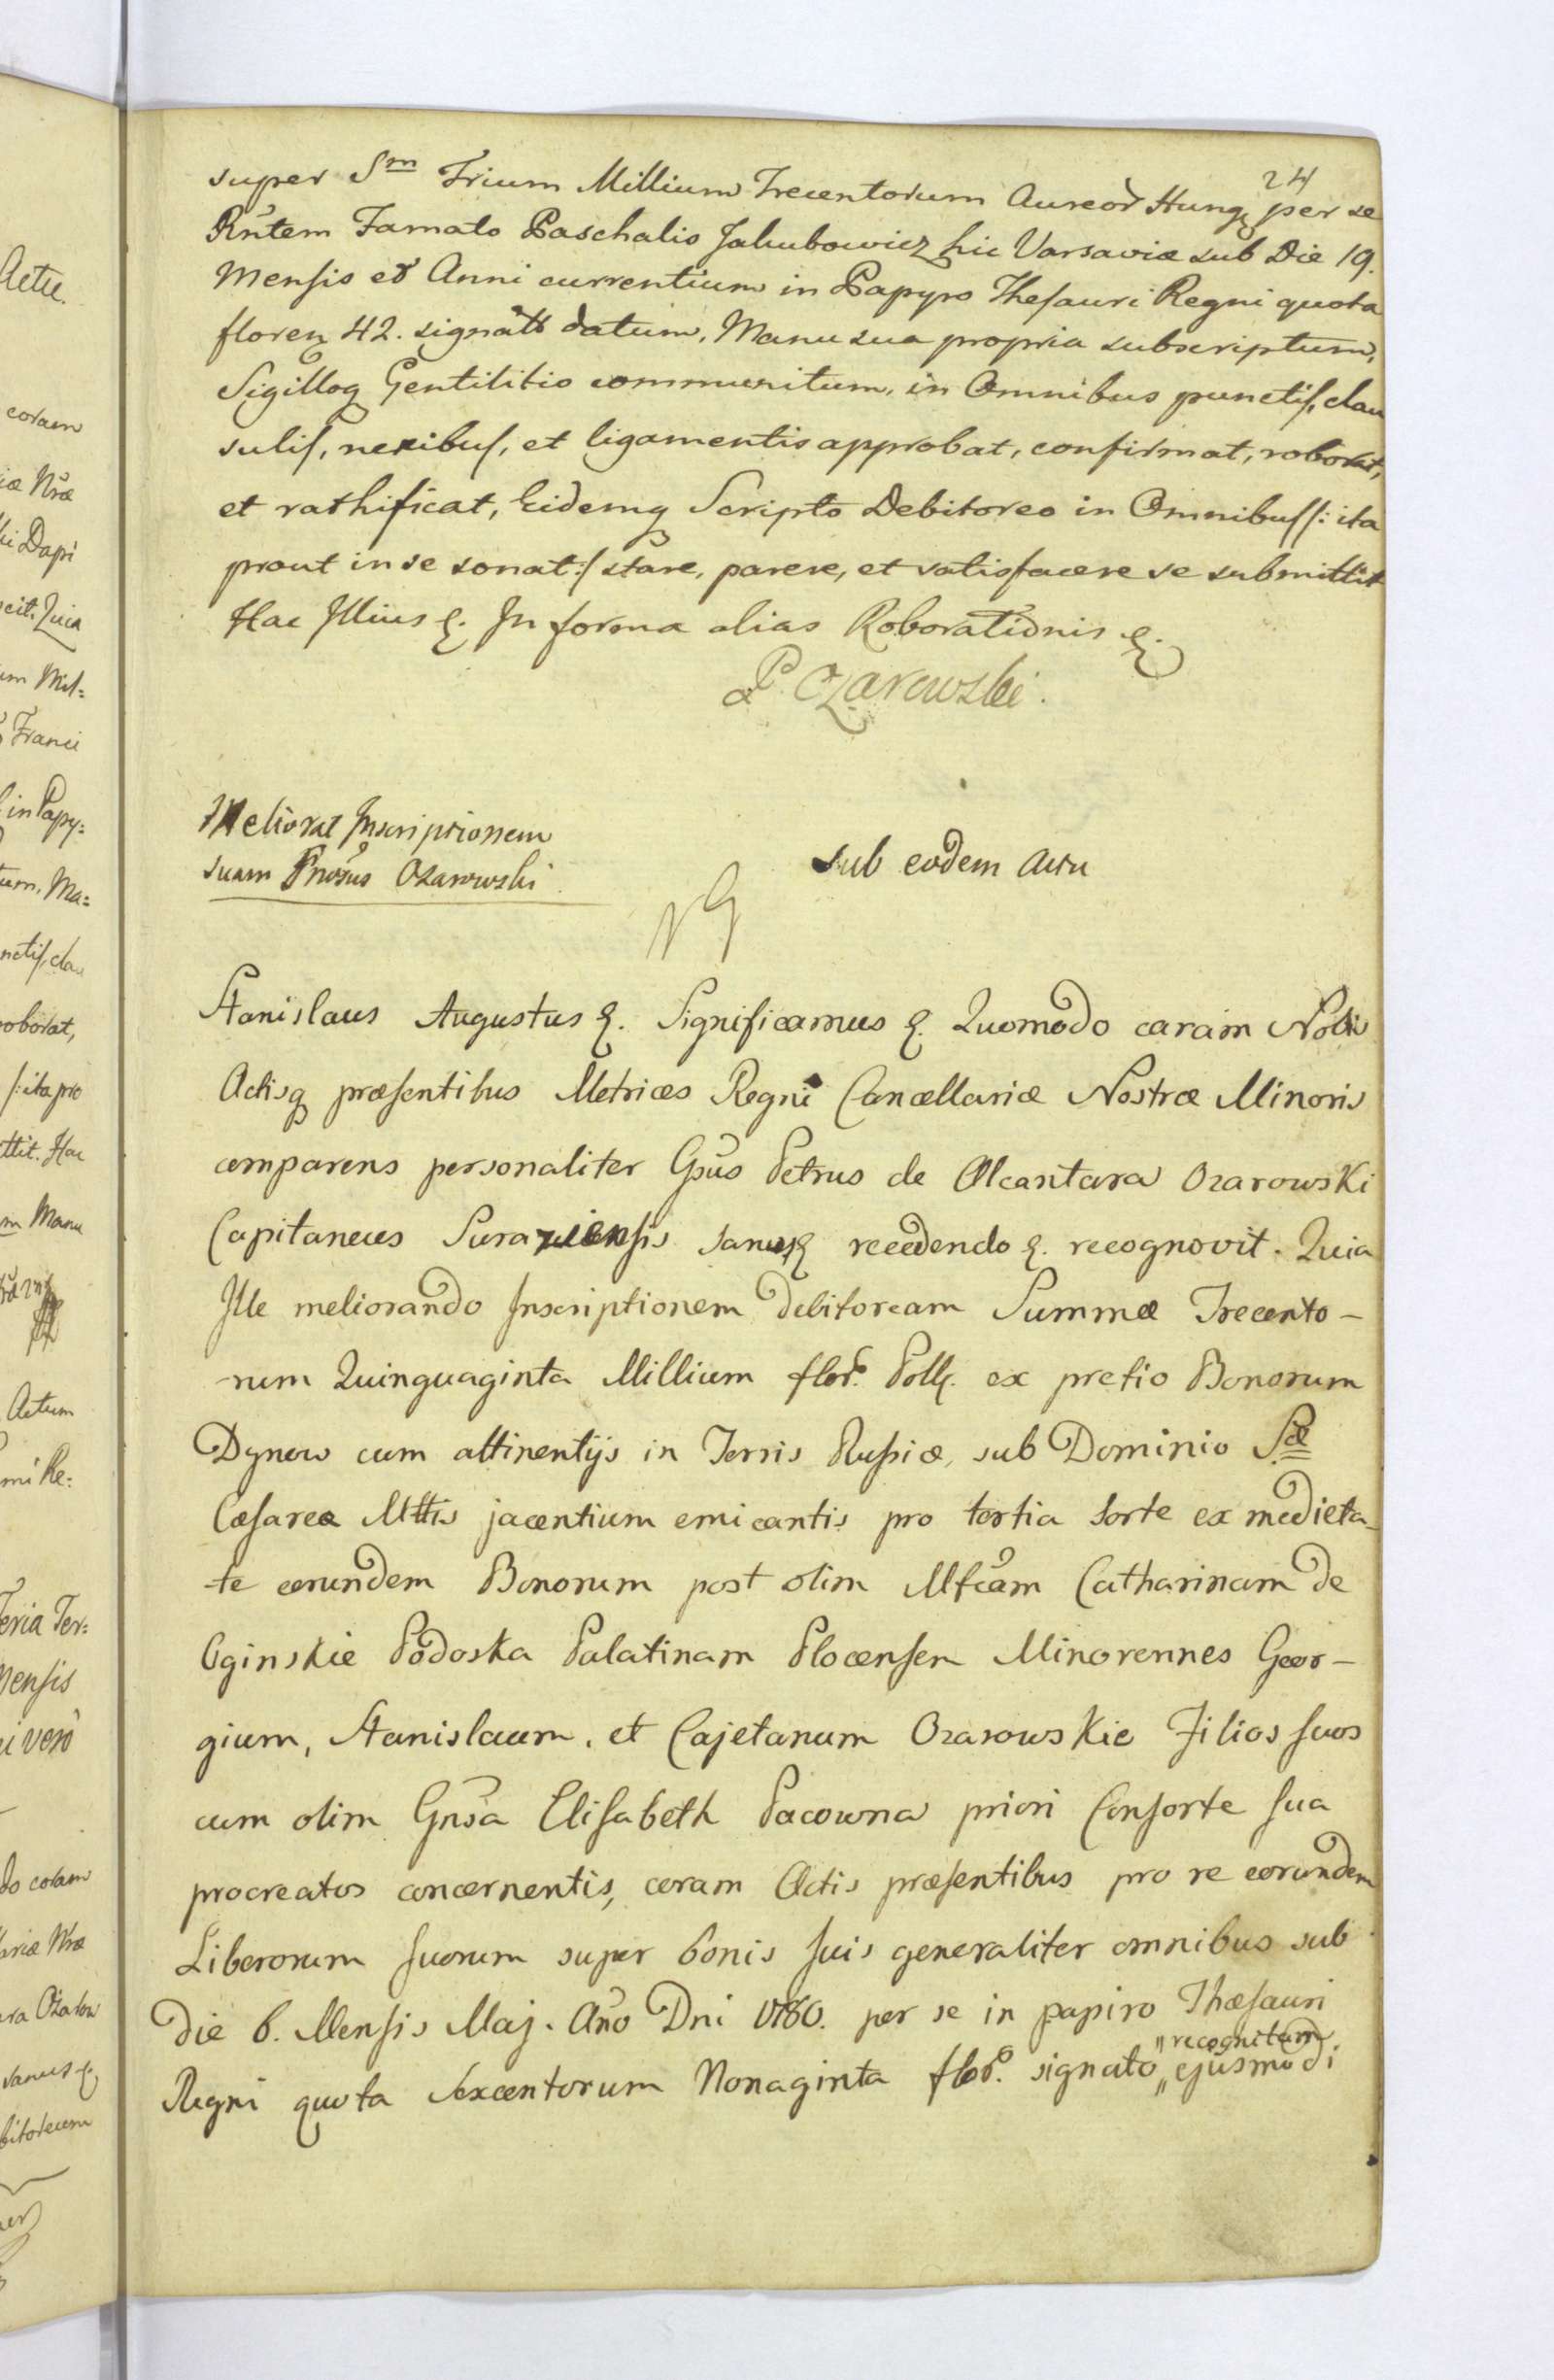 24
super Sm Trium Millium Trecentorum Aureor Hung per se
Rntem Famato Paschalis Jakubowicz hic Varsaviæ sub Die 19.
Mensis et Anni currentium in Papyro Thesauri Regni quota
floren 42. signatt datum, Manu sua propria subscriptum,
Sigilloq Gentilitio communitum, in Omnibus punctis, clau
sulis, nexibus, et ligamentis approbat, confirmat, roborat,
et rathificat, Eidemq Scripto Debitoreo in Omnibus /: ita
prout in se sonat :/ stare, parere, et satisfacere se submittit
Hac Illius &. In forma alias Roborationis &.
P Ożarowski.
Meliorat Inscriptionem
suam Gnosus Ożarowski
sub eodem Actu
Stanislaus Augustus &. Significamus &. Quomodo coram Nobis
Actisq præsentibus Metrices Regni Cancellariæ Nostræ Minoris
comparens personaliter Gsus Petrus de Alcantara Ozarowski
Capitaneus Suraziensis sanus &. recedendo &. recognovit. Quia
Ille meliorando Inscriptionem debitoream Summæ Trecento-
-rum Quinquaginta Millium flor. Poll. ex pretio Bonorum
Dynow cum attinentijs in Terris Russiæ, sub Dominio Sæ
Cæsarea Mttis jacentium emicantis pro tertia sorte ex medieta-
-te eorundem Bonorum post olim Mfcam Catharinam de
Oginskie Podoska Palatinam Plocensem Minorennes Geor-
gium, Stanislaum, et Cajetanum Ozarowskie Filios suos
cum olim Gnsa Elisabeth Pacowna priori Consorte sua
procreatos concernentis, coram Actis præsentibus pro re eorundem
Liberorum suorum super bonis suis generaliter omnibus sub
die 6. Mensis Maj. Ano Dni 1780. per se in papiro Thæsauri
"recognitam
Regni quota Sexcentorum Nonaginta flor. signato " ejusmodi